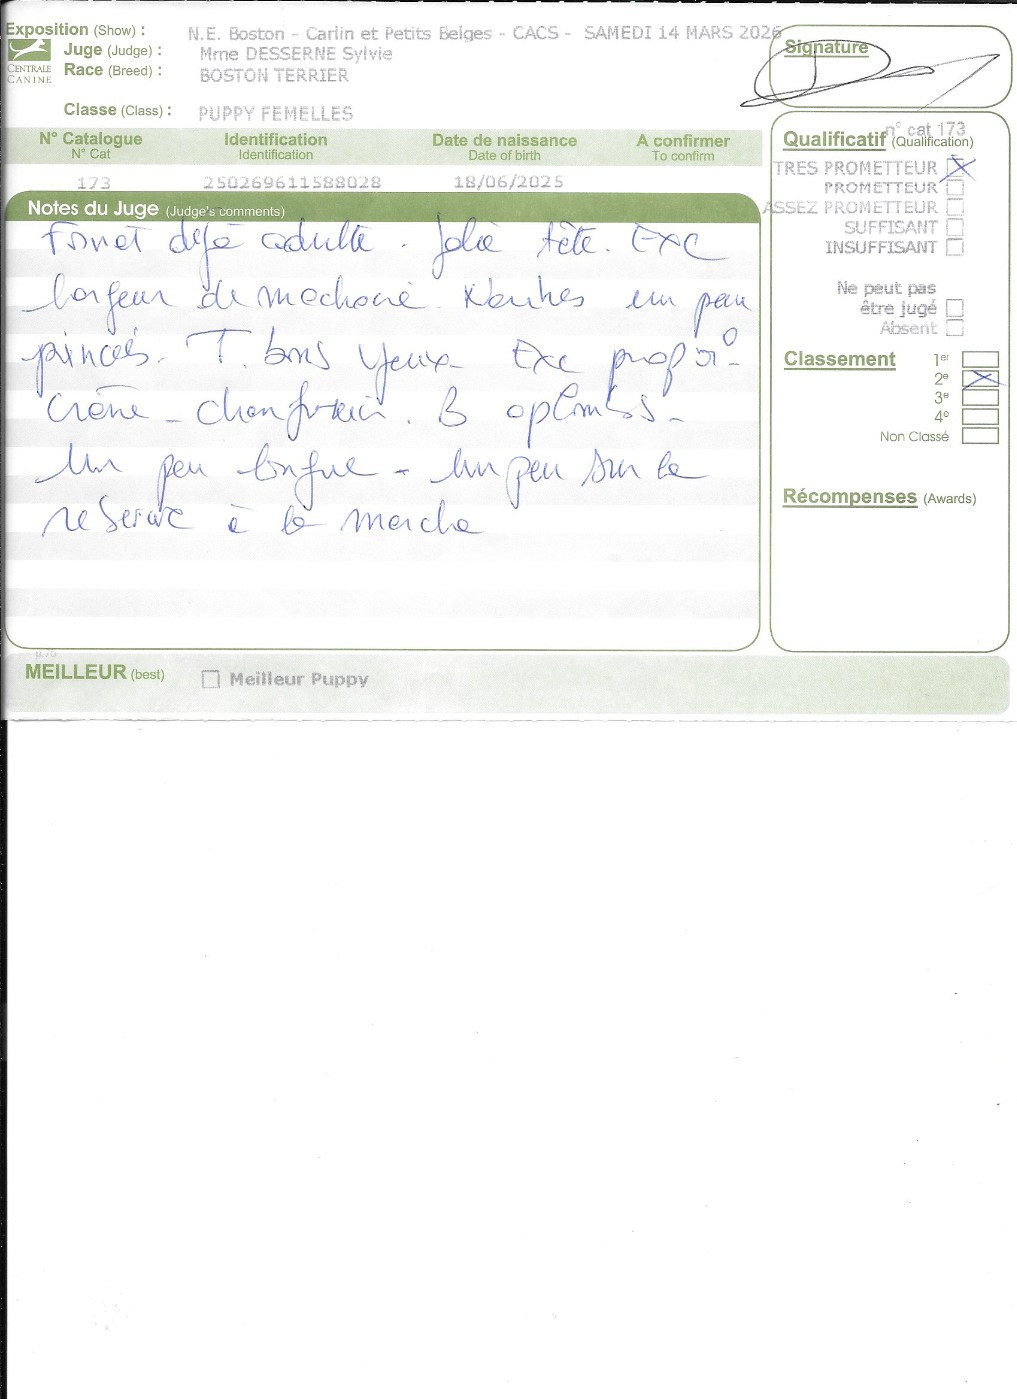 Exposition (Show) : N.E. Boston - Carlin et Petits Belges - CACS - SAMEDI 14 MARS 2026
Juge (Judge) : Mme DESSERNE Sylvie
Race (Breed) : BOSTON TERRIER
CENTRALE
CANINE
Classe (Class) : PUPPY FEMELLES
Signature
N° Catalogue Identification Date de naissance A confirmer
N° Cat Identification Date of birth To confirm
173 250269611588028 18/06/2025
n° cat 173
Qualificatif (Qualification)
TRES PROMETTEUR
PROMETTEUR
ASSEZ PROMETTEUR
SUFFISANT
INSUFFISANT
Ne peut pas
être jugé
Absent
Classement 1er
2e
3e
4e
Non Classé
Récompenses (Awards)
Notes du Juge (Judge's comments)
Format déjà adulte. Jolie tête. Exc
largeur de machoire. Narines un peu
pincés. T. bons yeux. Exc propor°
Crâne - chanfrein. B aplombs.
Un peu longue - Un peu sur la
reserve à la marche
MEILLEUR (best) Meilleur Puppy